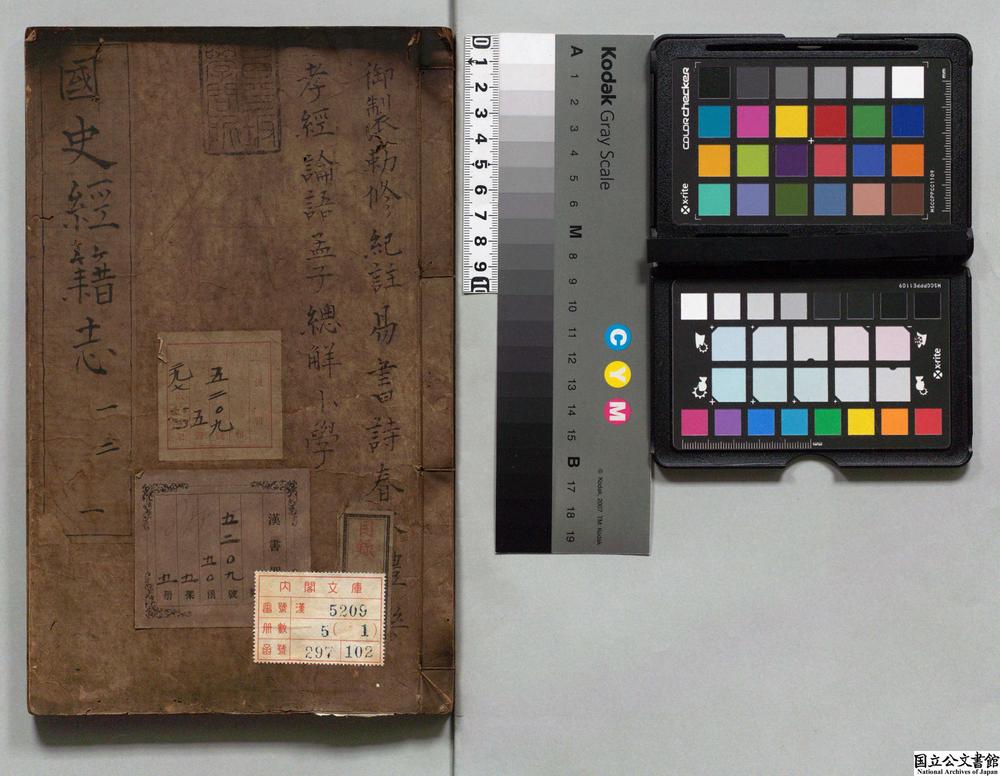 國史經籍志
一
二
一
御製
勅修
紀註
易
書
詩
春
禮
孝經
論語
孟子
總解
小學
目錄
五二〇九
五
漢書
五二〇九
號
五〇
函
五
架
五
册
內閣文庫
番號 漢 5209
册數 5(1)
函號 297 102
0 1 2 3 4 5 6 7 8 9 10
Kodak Gray Scale
A 1 2 3 4 5 6 M 8 9 10 11 12 13 14 15 B 17 18 19
C Y M
© Kodak, 2007 TM: Kodak.
colorchecker
x-rite
mm
MSCCPPCC1109
MSCCPPPE1109
x-rite
mm
国立公文書館
National Archives of Japan